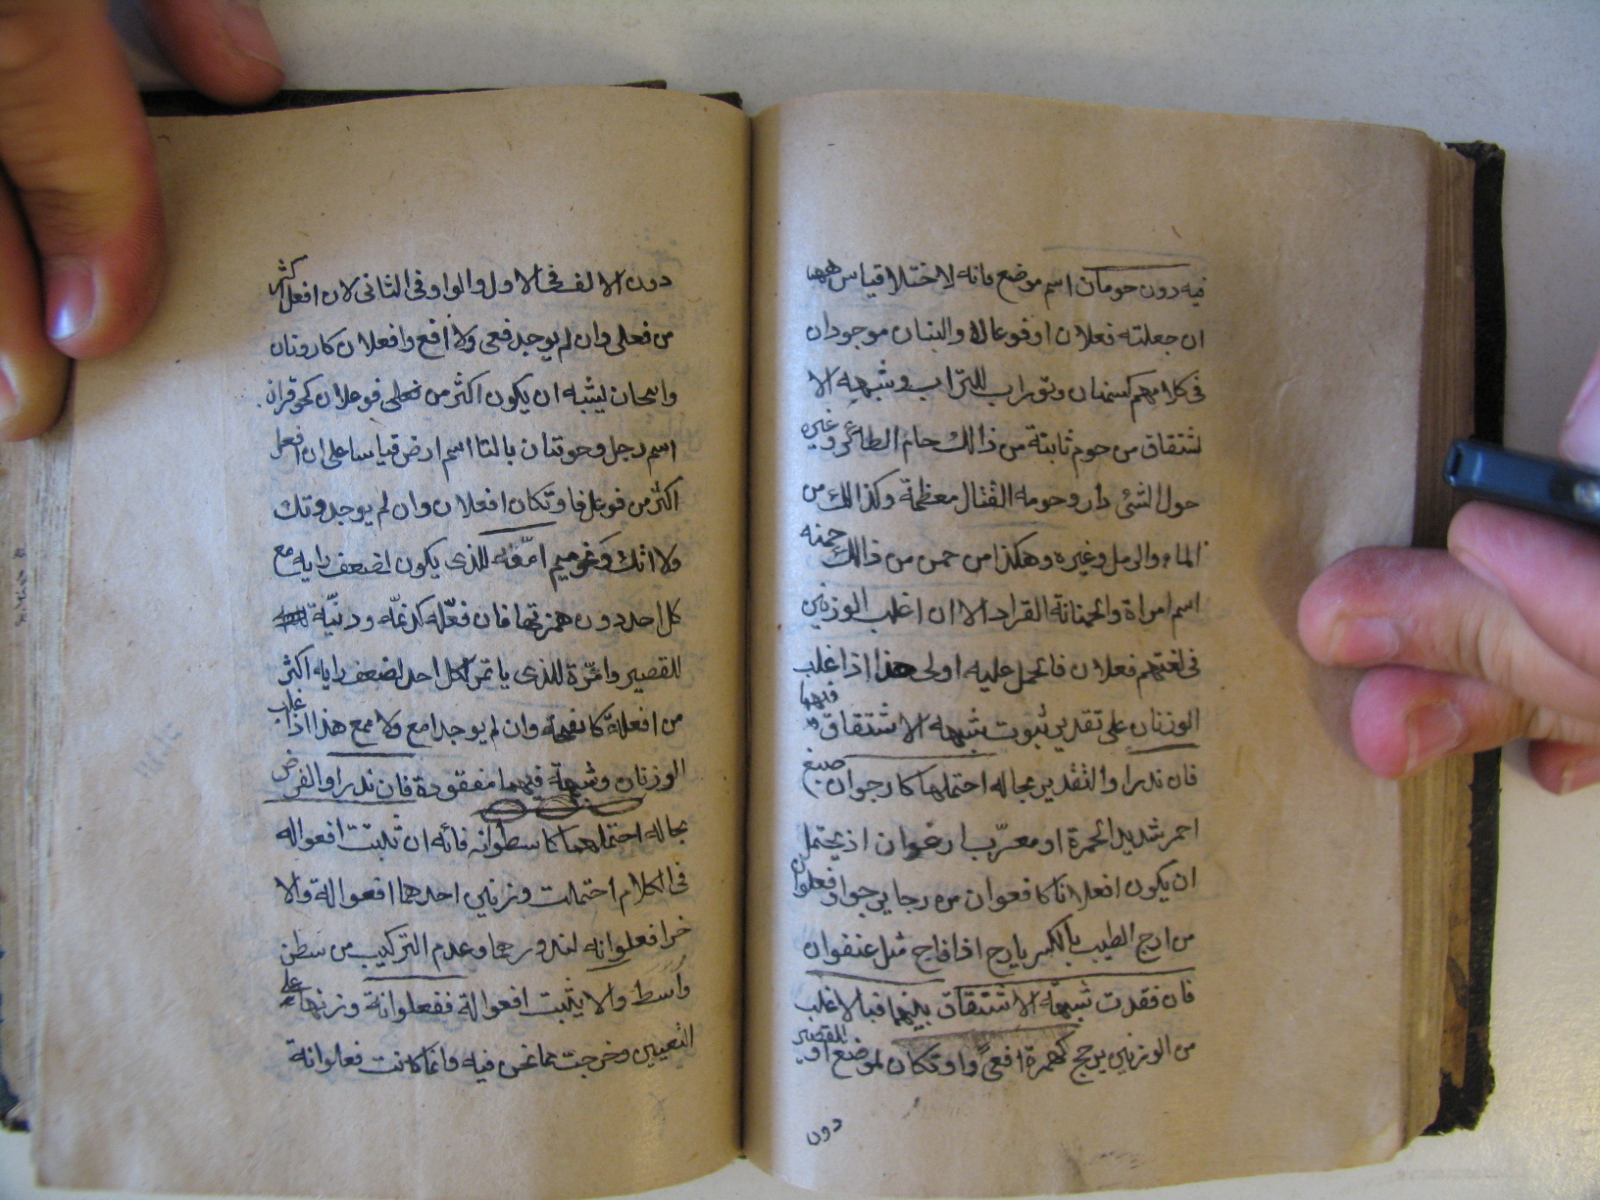 فيه دون حومان اسم موضع فانه لاختلا قياس ههنا
ان جعلته فعلان او فوعالا والبنان موجودان
فى كلامهم كسمنان وتوراب للتراب وشبهه الا
شتقاق من حوم ثابتة من ذالك حام الطائر وغيره
حول الشئ دار وحومه القتال معظمة وكذالك من
الماء والرمل وغيره وهكذا من حمن من ذالك حمنه
اسم امراة والحمنانة القراد الا ان اغلب الوزنين
فى لغتهم فعلان فالحمل عليه اولى هذا اذا غلب
الوزنان على تقدير ثبوت شبهه الا شتقاق فيهما
فان ندرا والتقدير بحاله احتملها كارجوان صبغ
احمر شديد الحمرة او معرب ارغوان اذ يحتمل
ان يكون افعلانا كافعوان من رجا يرجو او فعلوان
من ارج الطيب بالكسر يارج اذا فاج مثل عنفوان
فان فقدت شبهة الاشتقاق بينهما فبالاغلب
من الوزنين يرجح كهمزة افعى واوتكان لموضع او للقصير
دون
دون الالف فى الاول والواو فى الثانى لان افعل اكثر
من فعلى وان لم يوجد فعى ولا افع وافعلان كاروتان
واسحان ليثبه ان يكون اكثر من فعلى فوعلان كحوقران
اسم رجل وحوتنان بالتا اسم ارض قياسا على ان افعل
اكثر من فوعل فاوتكان افعلان وان لم يوجد وتك
ولا اتك وكنحو ميم امّعه للذى يكون لضعف رايه مع
كل احد دون همزتها فان فعّله كدنمّه ودنبّة
للقصير وامّرة للذى ياتمر لكل احد لضعف رايه اكثر
من افعلة كانفحة وان لم يوجد امع ولا ممع هذا اذا غلب
الوزنان وشبهة فيهما مفقودة فان ندرا والفرض
بحاله احتملهما كاسطوانه فانه ان ثبتت افعواله
فى الكلام احتملت وزنين احدهما افعوالة والا
خر افعلوانه لندورهما وعدم التركيب من سطن
واسط والا يثبت افعوالة ففعلوانة وزنها على
التعيين وخرجت مما نحن فيه وانما كانت فعلوانة